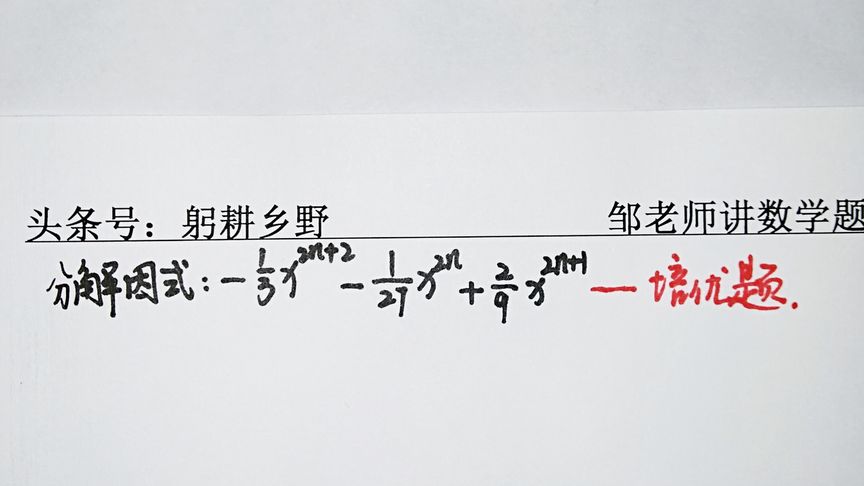 头条号：躬耕乡野 邹老师讲数学题
分解因式：-1/3 x^{2n+2} - 1/27 x^{2n} + 2/9 x^{2n+1} — 培优题.